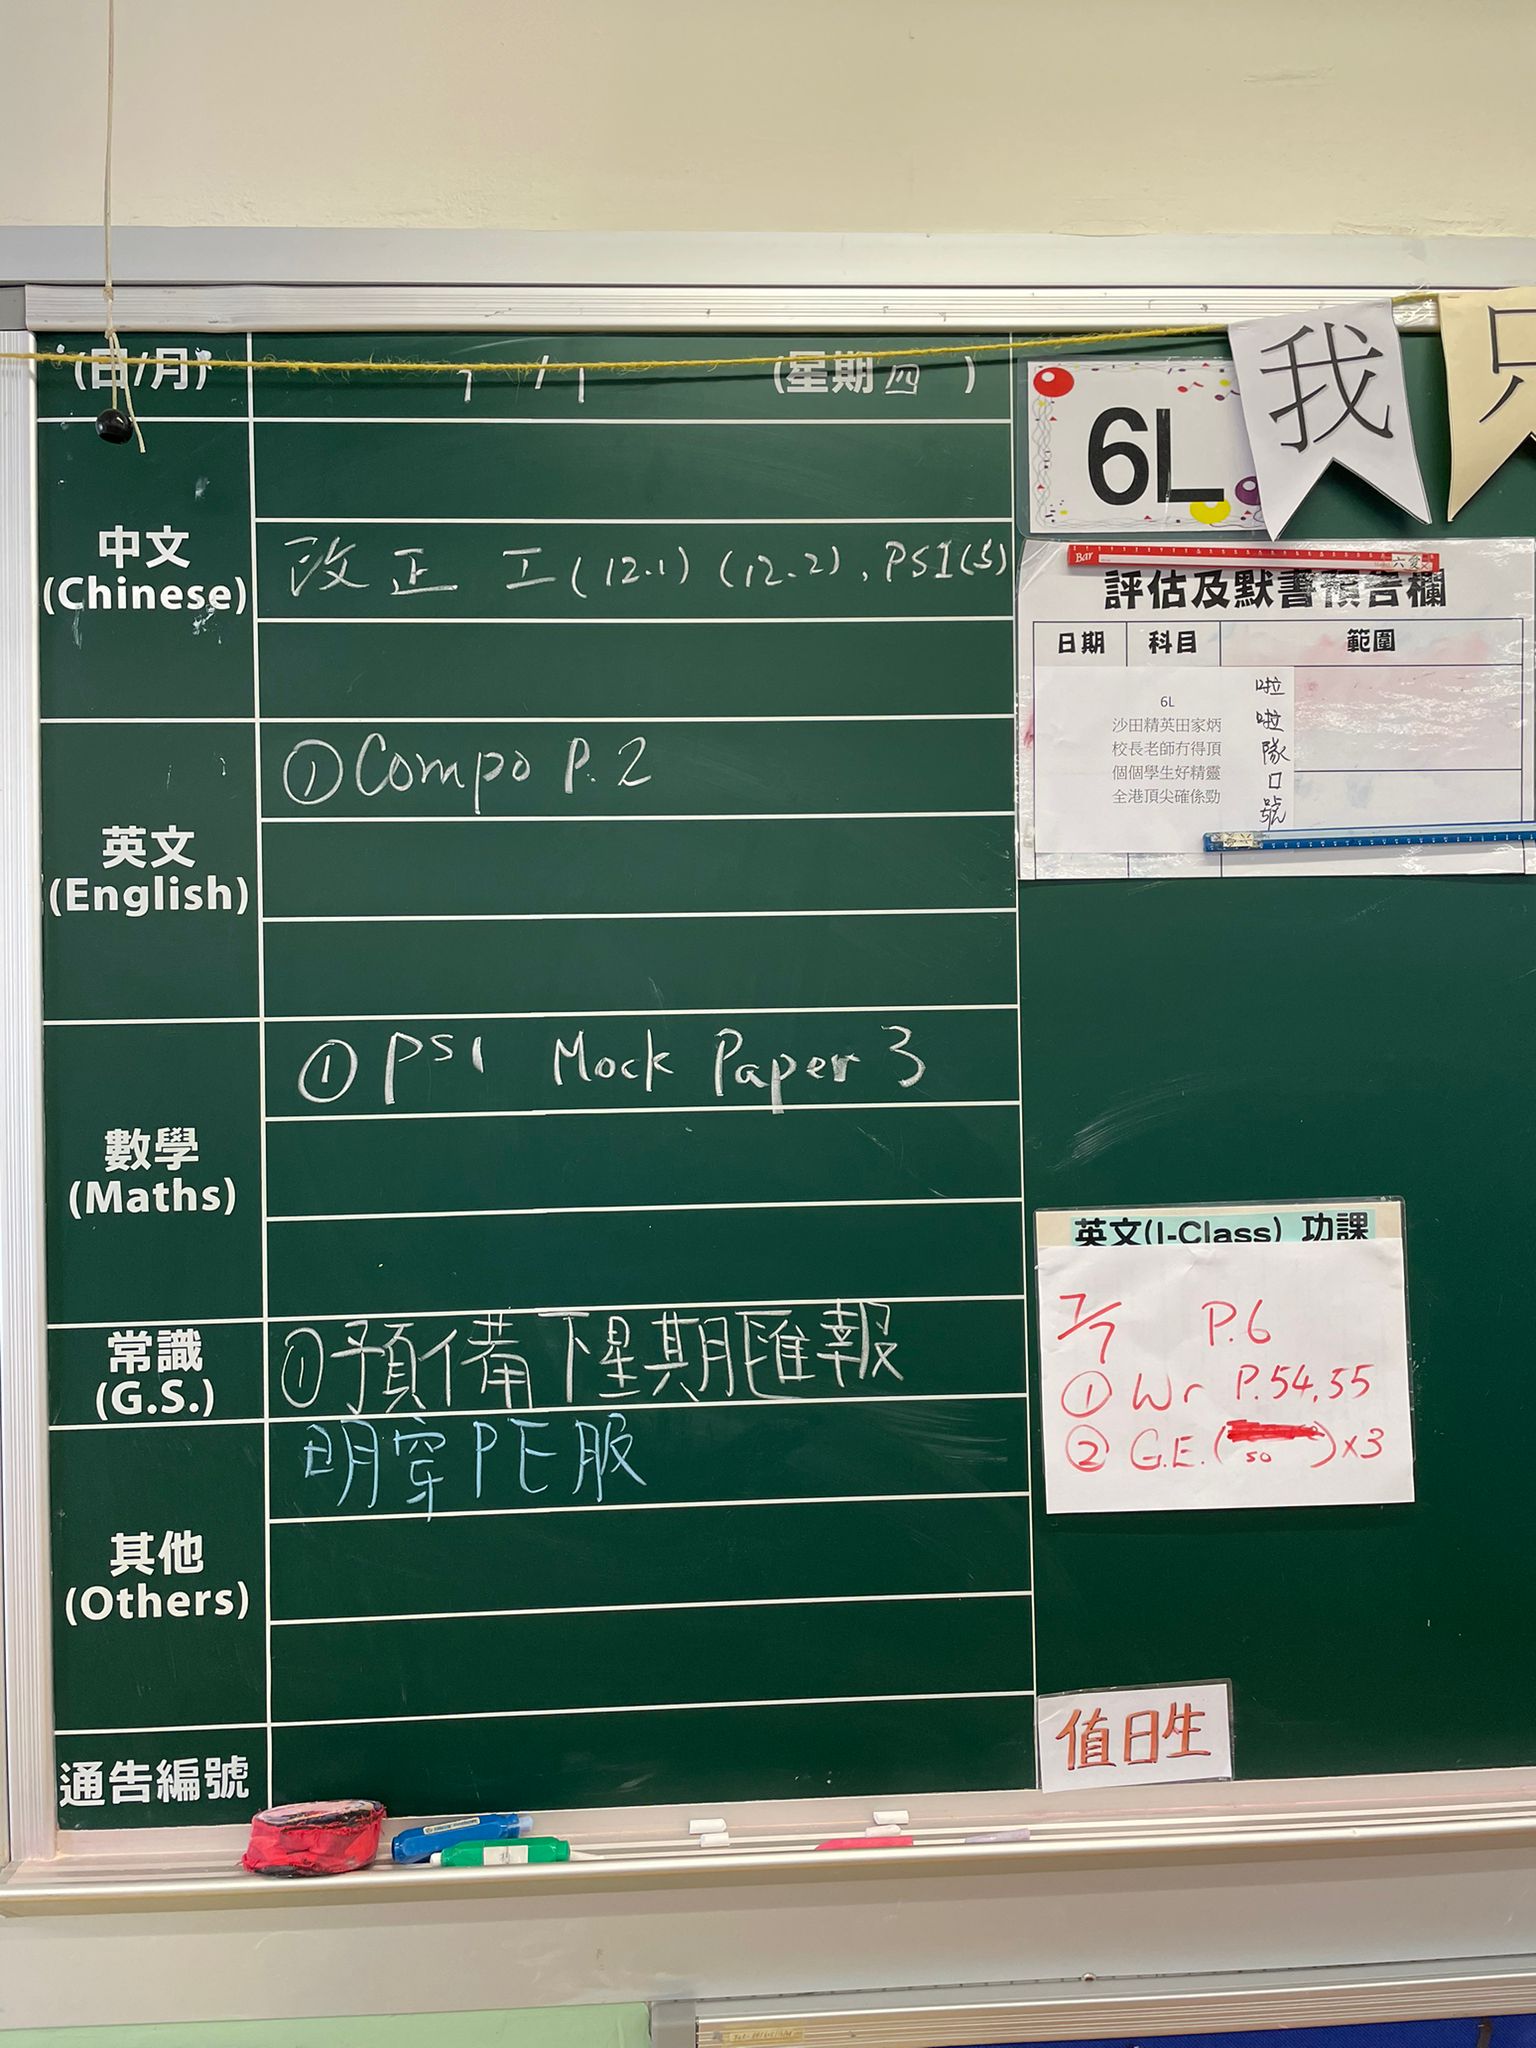 (日/月) 7 / 1 (星期四)
中文
(Chinese)
改正 工(12.1) (12.2), PSI(5)
英文
(English)
① Compo P.2
數學
(Maths)
① PS1 Mock Paper 3
常識
(G.S.)
① 預備下星期匯報
其他
(Others)
明穿PE服
通告編號
我
只
6L
Bar
六愛
評估及默書預告欄
日期 科目 範圍
6L
沙田精英田家炳
校長老師冇得頂
個個學生好精靈
全港頂尖確係勁
啦啦隊口號
英文(I-Class) 功課
7/7 P.6
① Wr P.54,55
② G.E. (so) x3
值日生